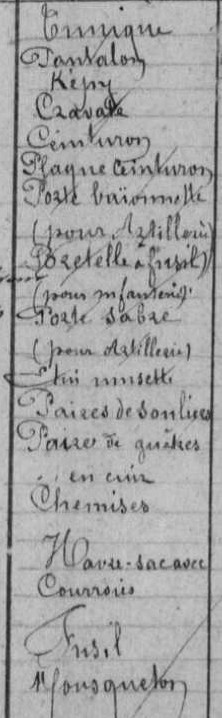 Tunique
Pantalon
Képy
Cravate
Ceinturon
Plaque Ceinturon
Porte baïonnette
(pour Artillerie)
Bretelle à fusil)
(pour infanterie)
Porte Sabre
(pour Artillerie)
Etui musette
Paires de souliers
Paires de guêtres
en cuir
Chemises
Havre-sac avec
Courroies
Fusil
Mousqueton